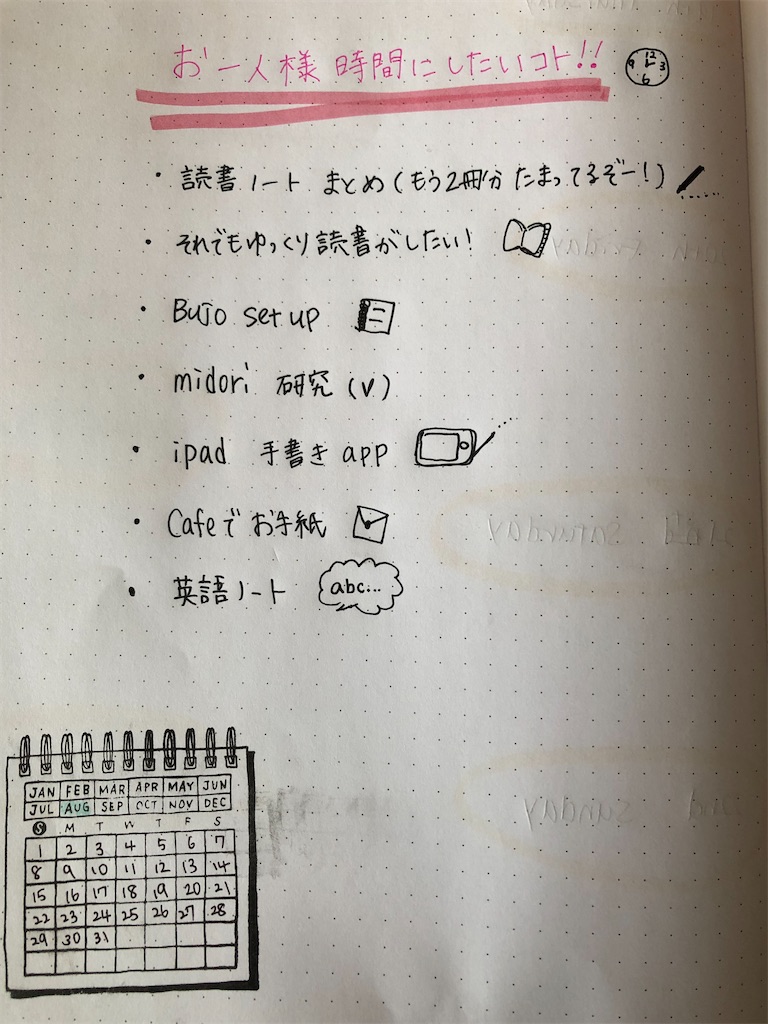 お一人様時間にしたいコト!!
12
9 3
6
・読書ノート まとめ(もう2冊分たまってるぞー!)
・それでもゆっくり読書がしたい!
・BuJo set up
・midori 研究(v)
・ipad 手書き app
・Cafeでお手紙
・英語ノート abc...
JAN FEB MAR APR MAY JUN
JUL AUG SEP OCT NOV DEC
S M T W T F S
1 2 3 4 5 6 7
8 9 10 11 12 13 14
15 16 17 18 19 20 21
22 23 24 25 26 27 28
29 30 31